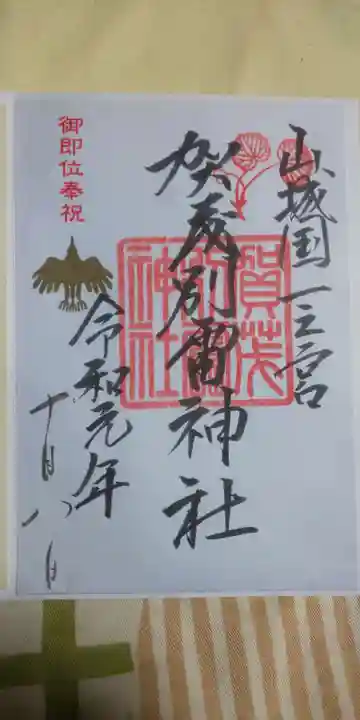 山城国一之宮
賀茂別雷神社
賀茂
別雷
神社
御即位奉祝
令和元年
十月八日